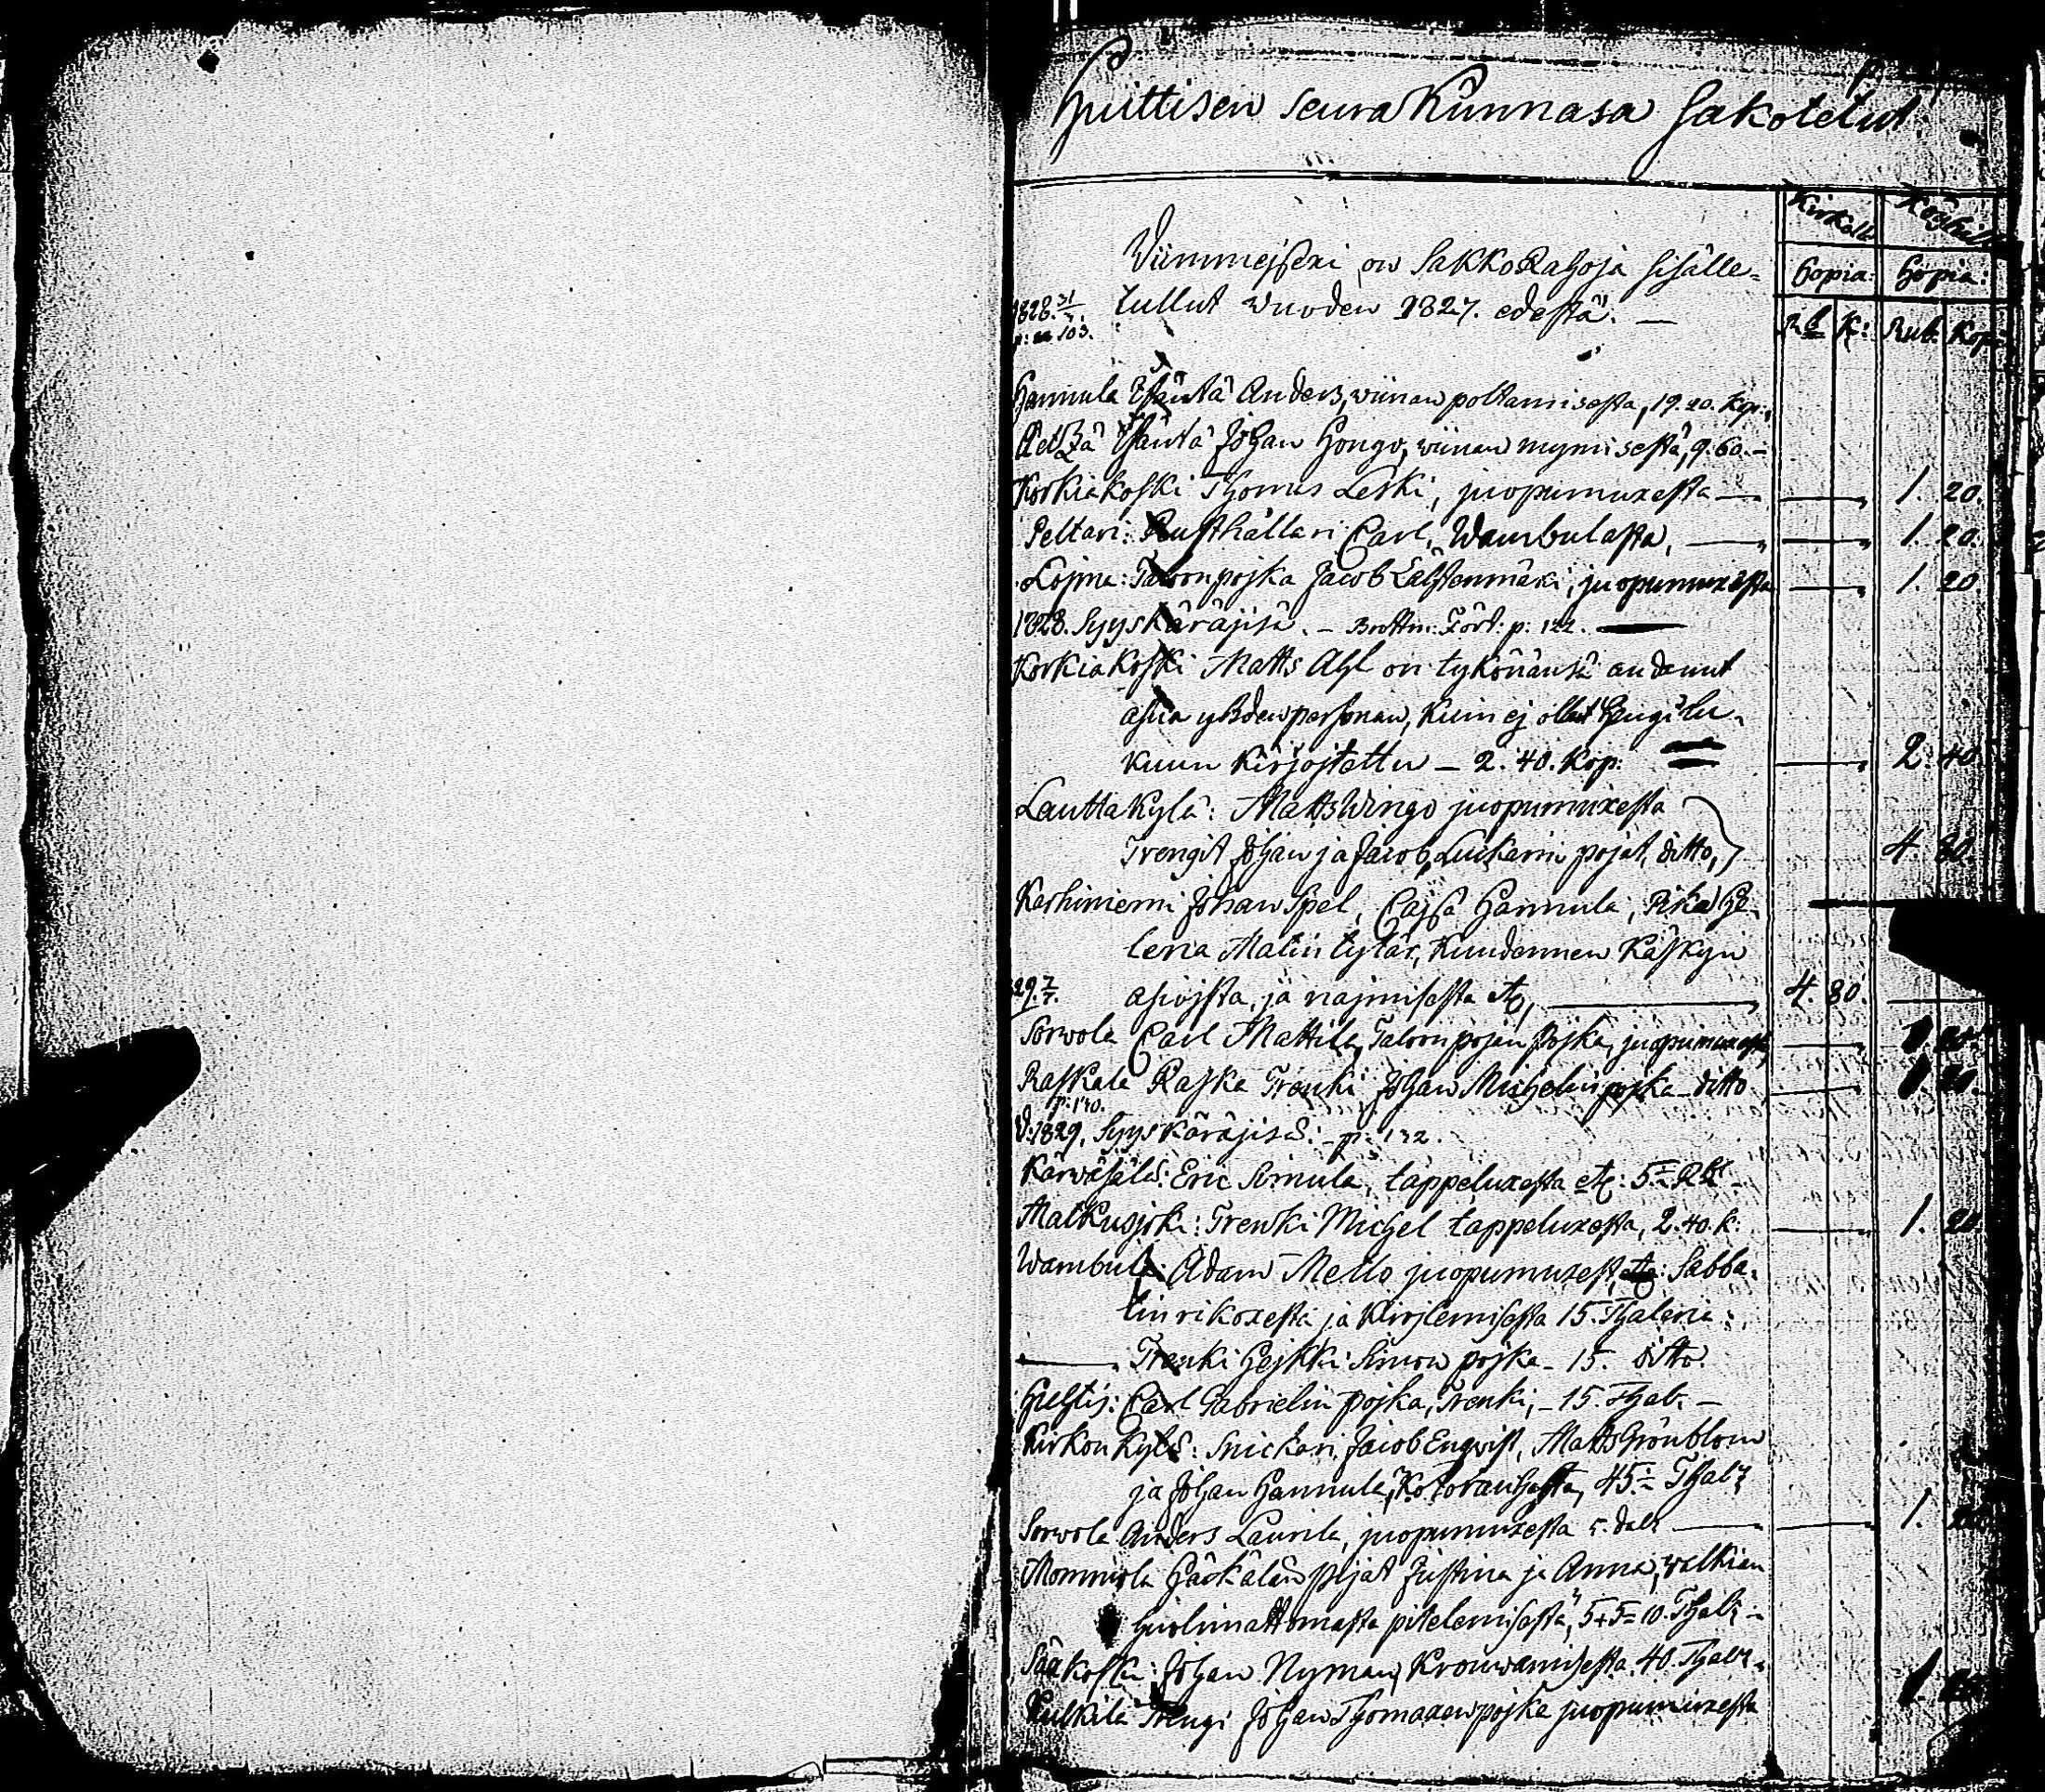 Huittisen seurakunnasa sakotetut.
Kirkolle Köyhille
Viimmejsexi on SakkoRahoja sisälle-
Hopia: Hopia:
1828. 31/7. tullut wuoden 1827. edestä. —
p: 103.
Rbl K: Rub: Kop:
Hannula Isäntä Anders, wiinan poltamisesta, 19. 20. Kop:
Äetzä Isäntä Johan Hongo, wiinan myymisestä, 9. 60. —
Korkiakoski Thomas Leski, juopumuxesta — 1. 20.
Peltari: Rusthållari Carl, Wambulasta, — 1. 20.
Lojma: Taloonpojka Jacob juopumuxesta — 1. 20.
1828. Syyskäräjisä. — Förd: p: 122.
Korkiakoski Matts Ahl on tykönänsä andanut
asua yxden personan, kuin ej ollut Hengilu-
kuun kirjojtettu — 2. 40. Kop: 2. 40.
Lauttakylä: Matts Wingo juopumuxesta
Trengit Johan ja Jacob Luikarin pojat, ditto, 4. 80.
Karhiniemi Johan Spel, Cajsa Hannula, Pika He-
lena Matin tytär, Kuudennen Käskyn
29. 7/7. asiojsta, ja najmisesta etc, — 4. 80.
Sorvola Carl Mattila, Taloonpojan Pojka, juopumuxesta, — 1. 20.
Raskala Raska Trenki Johan Michelin pojka — ditto — 1. 20.
p: 140.
V: 1829. Syyskäräjisä: — p: 132.
Kärväsälä: Eric Simula, tappeluxesta etc: 5 Rbl —
Matkusjoki: Trenki Michel tappeluxesta, 2. 40. k: — 1. 20
Wambula: Adam Mello juopumuxest, etc: Sabba-
tin rikoxesta ja Kirjlemisesta 15. Thaleria:
— Trenki Hejkki Simon pojka — 15. ditto.
Huhtis: Carl Gabrielin pojka, Trenki, — 15. Thal: —
Kirkonkylä: Snickari Jacob Enqvist, Matts Grönblom
ja Johan Hannula, Kotorauhasta, 45 Thal:
Sorvola Anders Laurila, juopumuxesta 5. dalr — 1. 20
Mommola Häckälän pijat Justina ja Anna, walkian
huolimattomasta pitelemisestä, 5+5=10. Thal: —
Sääkoski: Johan Nyman, Krouwamisesta 40. Thalr.
Kulkila Trengi Johan Thomaxen pojka juopumuxesta 1. 20